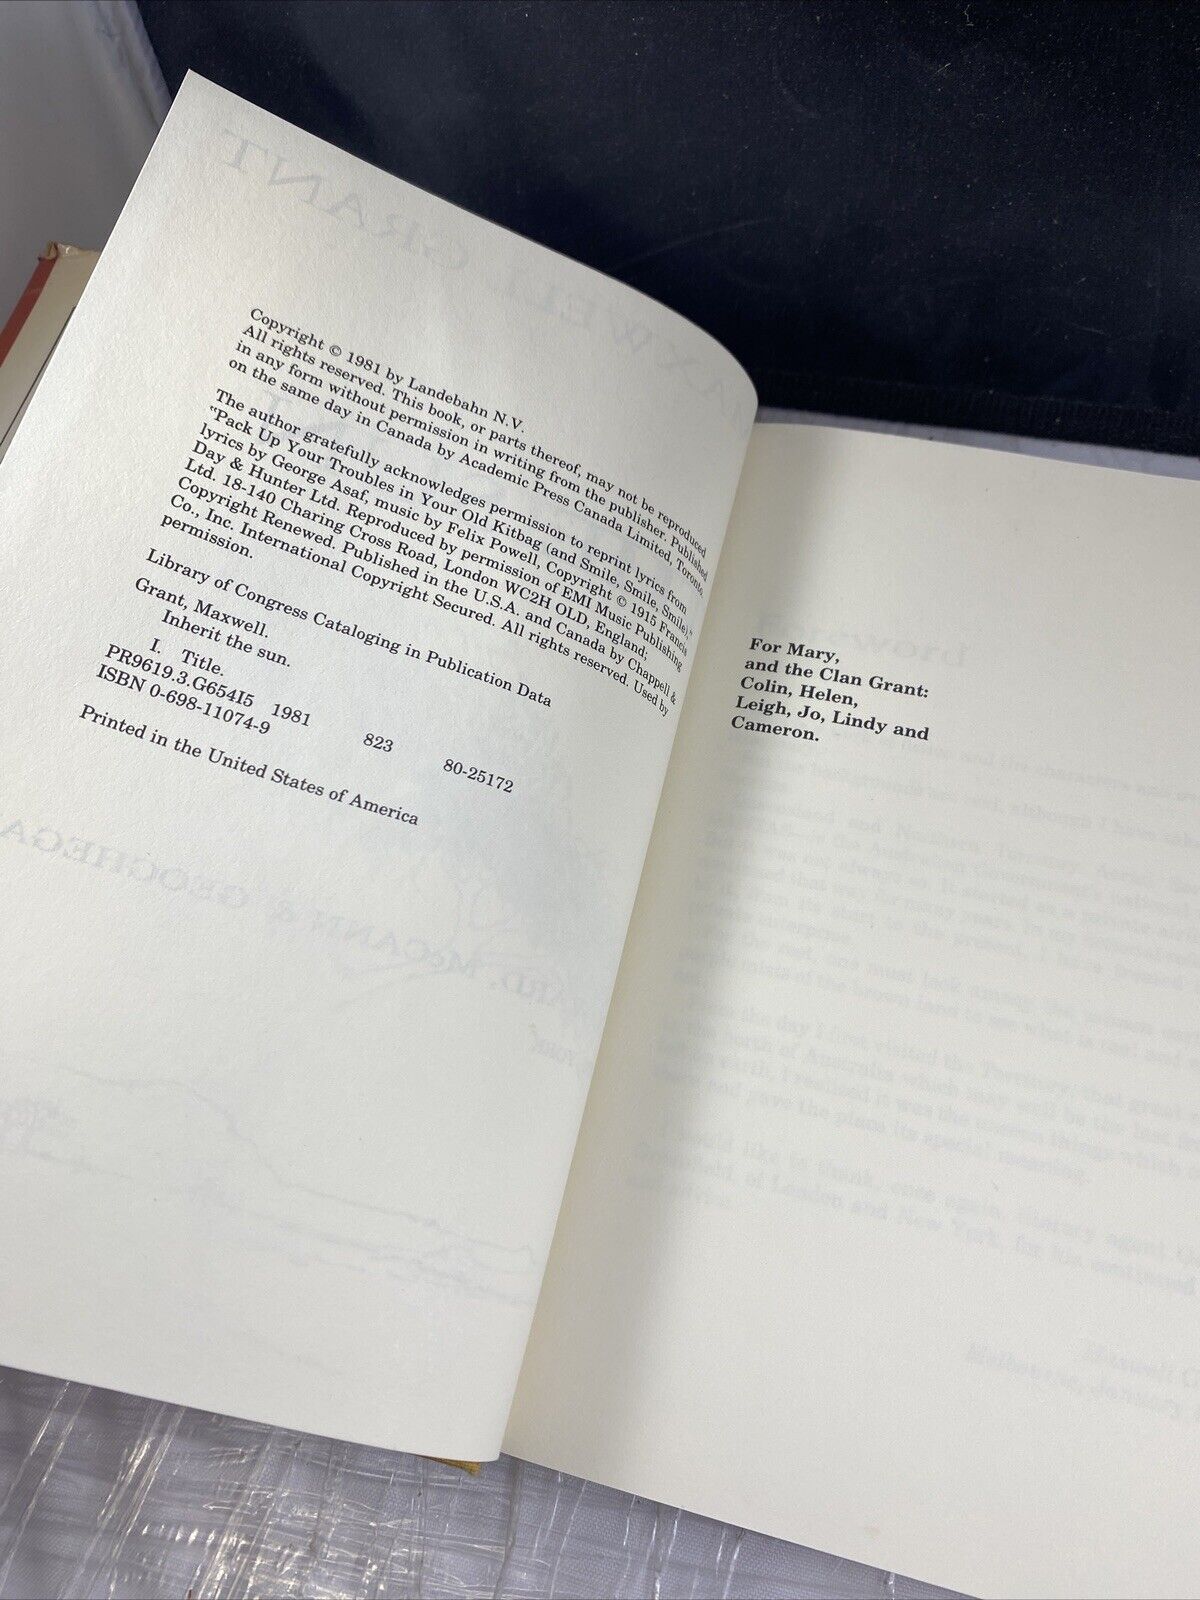 Copyright © 1981 by Landebahn N.V.
All rights reserved. This book, or parts thereof, may not be reproduced
in any form without permission in writing from the publisher. Published
on the same day in Canada by Academic Press Canada Limited, Toronto.
The author gratefully acknowledges permission to reprint lyrics from
"Pack Up Your Troubles in Your Old Kitbag (and Smile, Smile, Smile),"
lyrics by George Asaf, music by Felix Powell, Copyright © 1915 Francis
Day & Hunter Ltd. Reproduced by permission of EMI Music Publishing
Ltd. 18-140 Charing Cross Road, London WC2H OLD, England;
Copyright Renewed. Published in the U.S.A. and Canada by Chappell &
Co., Inc. International Copyright Secured. All rights reserved. Used by
permission.
Library of Congress Cataloging in Publication Data
Grant, Maxwell.
Inherit the sun.
I. Title.
PR9619.3.G654I5 1981 823 80-25172
ISBN 0-698-11074-9
Printed in the United States of America
For Mary,
and the Clan Grant:
Colin, Helen,
Leigh, Jo, Lindy and
Cameron.